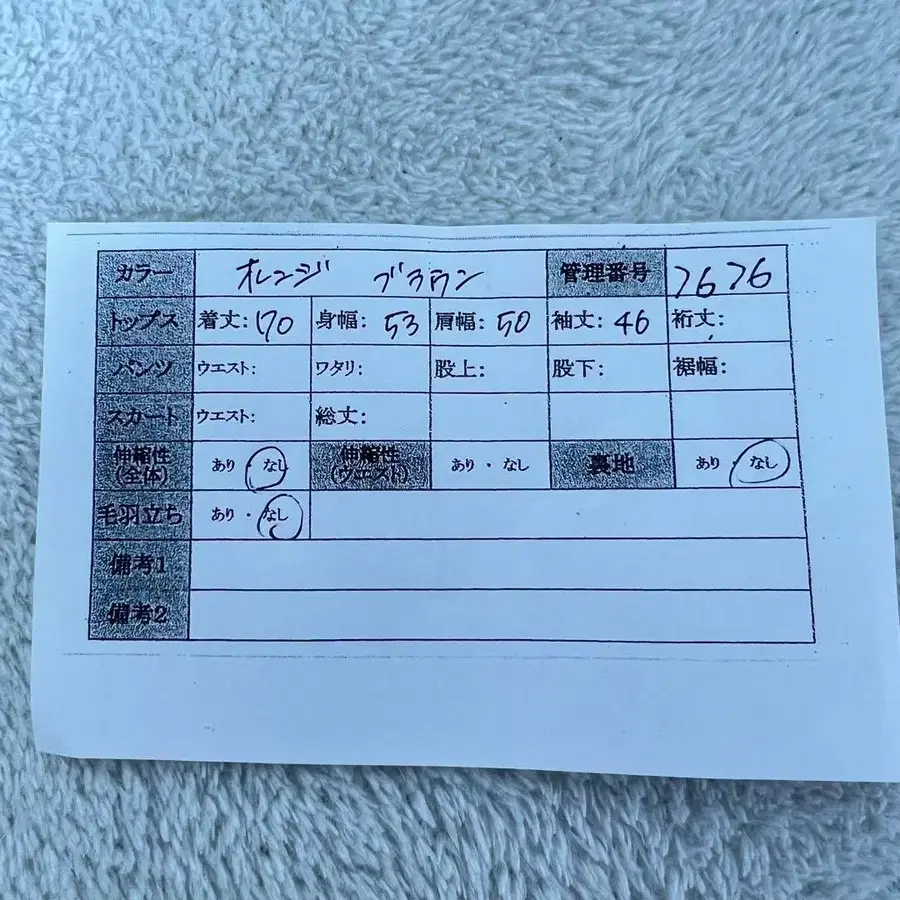 カラー オレンジ ブラウン 管理番号 7676
トップス 着丈: 70 身幅: 53 肩幅: 50 袖丈: 46 裄丈:
パンツ ウエスト: ワタリ: 股上: 股下: 裾幅:
スカート ウエスト: 総丈:
伸縮性 (全体) あり ・ なし 伸縮性 (ウエスト) あり ・ なし 裏地 あり ・ なし
毛羽立ち あり ・ なし
備考1
備考2